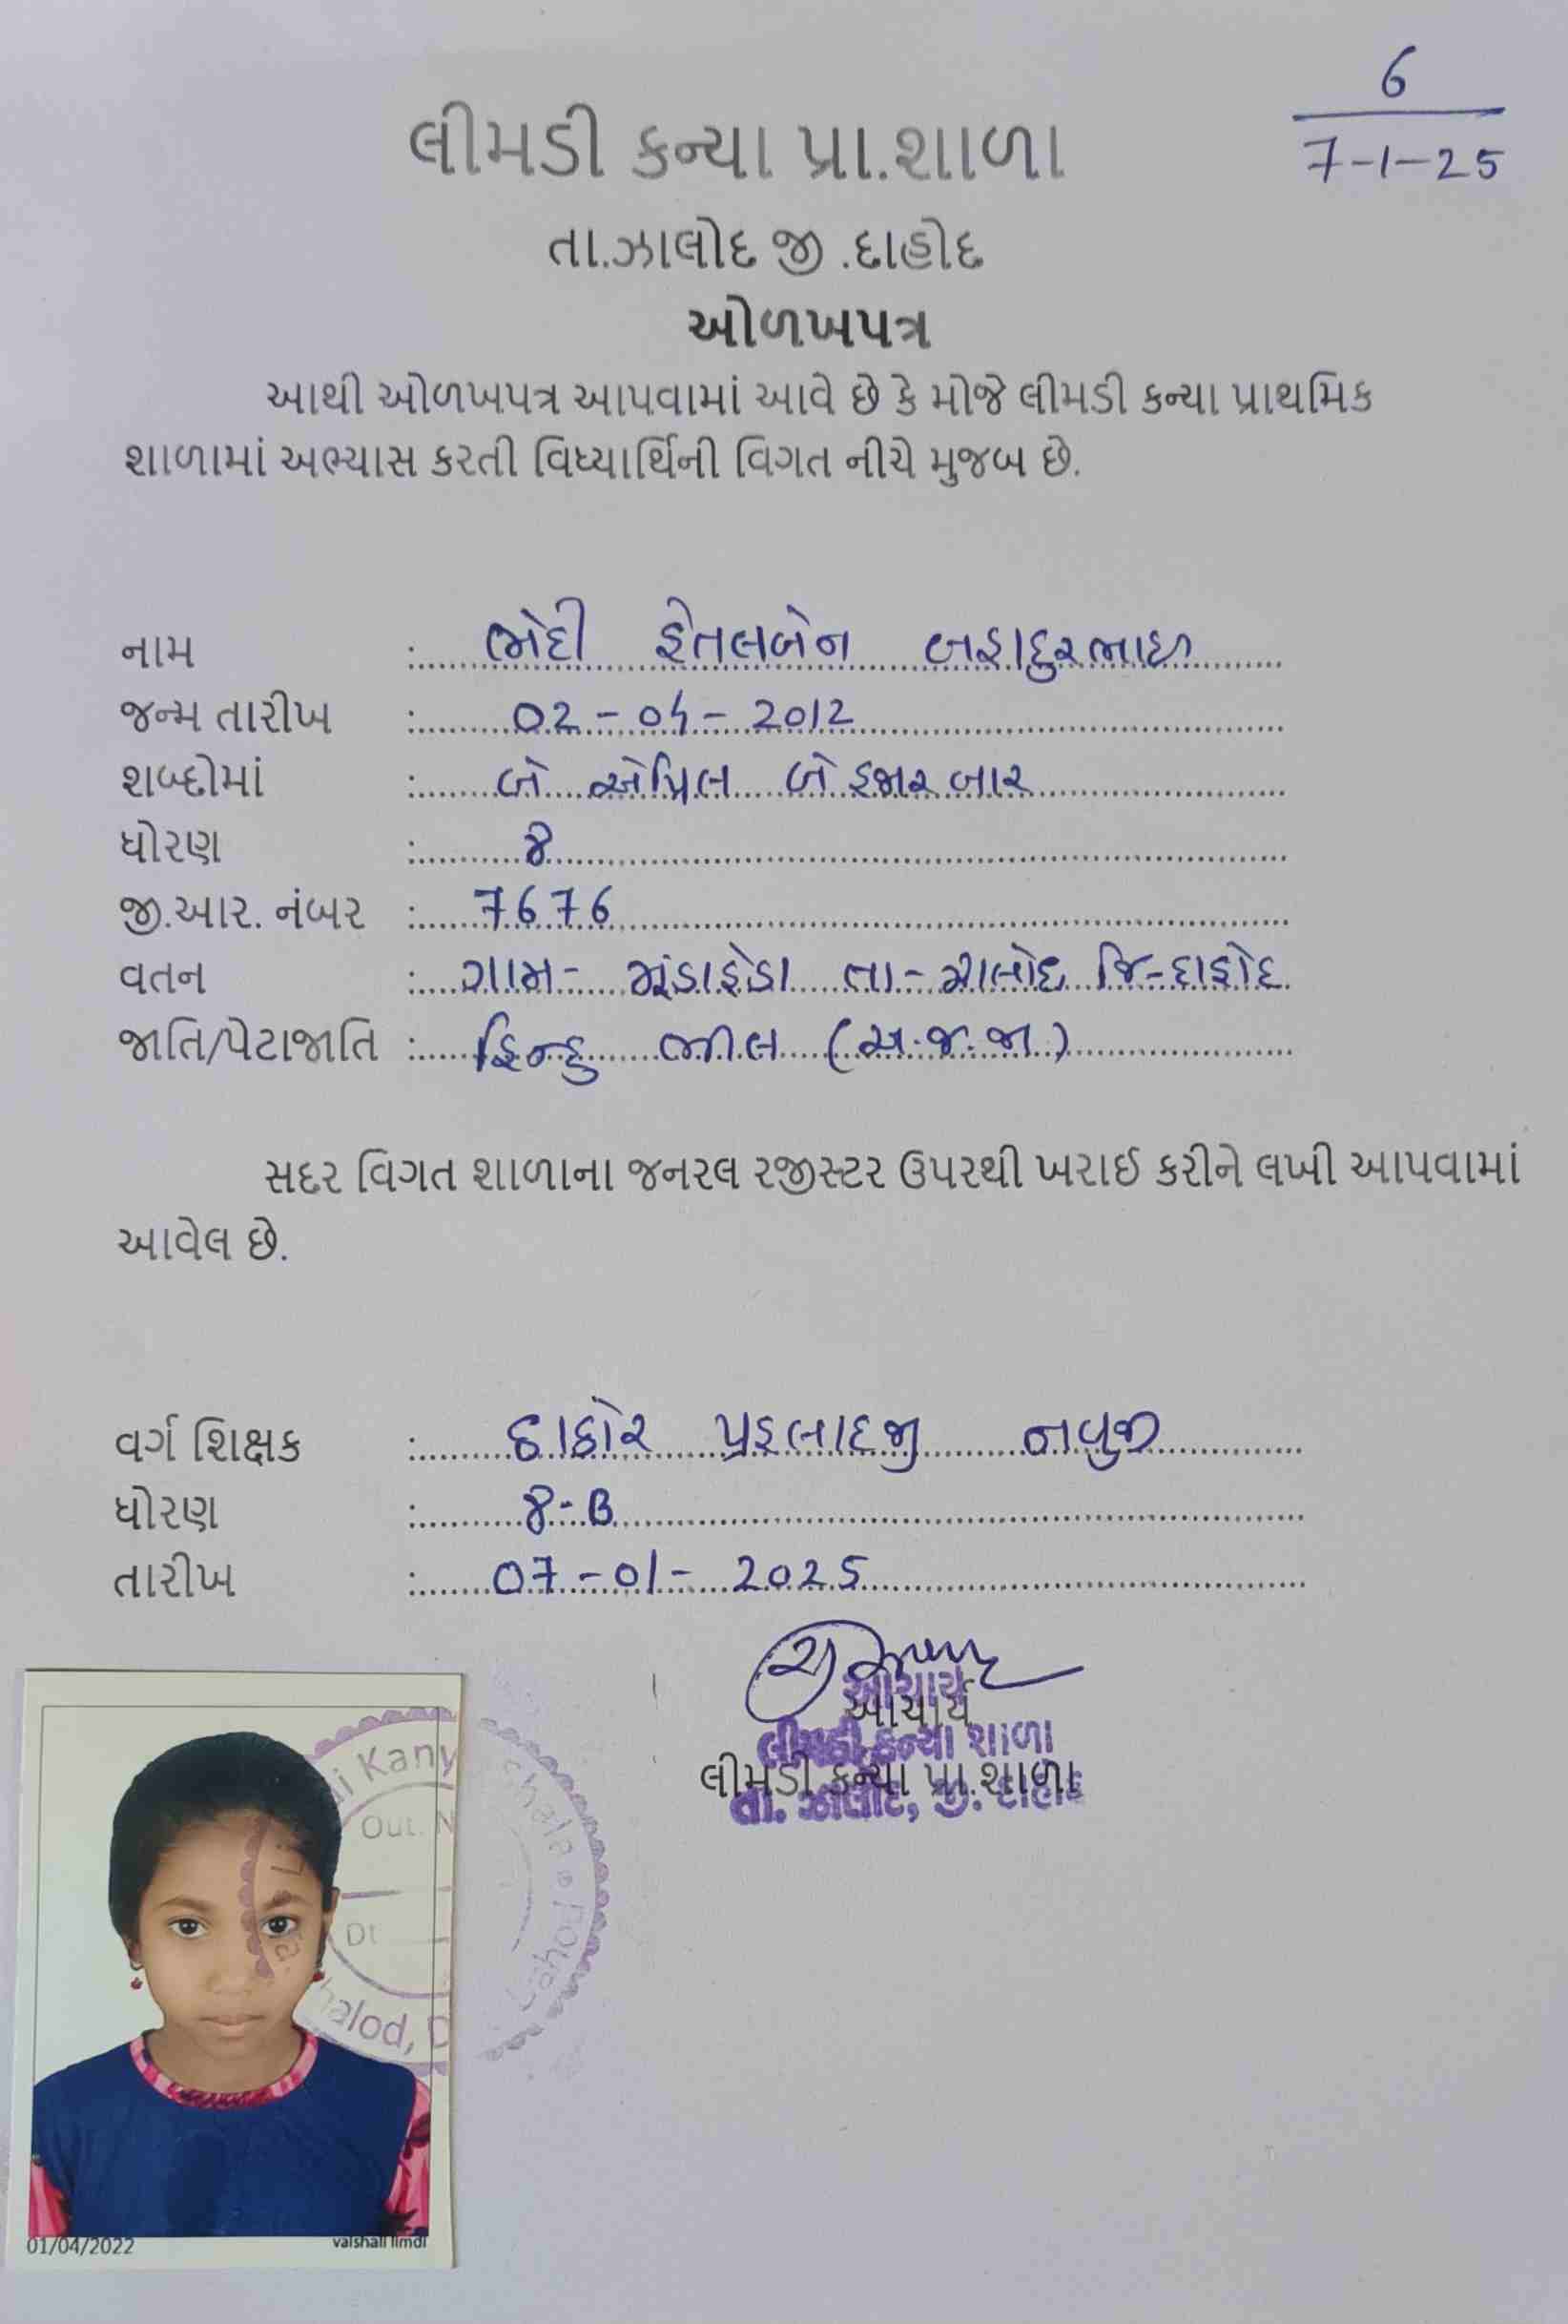 6
7-1-25
લીમડી કન્યા પ્રા.શાળા
તા.ઝાલોદ જી .દાહોદ
ઓળખપત્ર
આથી ઓળખપત્ર આપવામાં આવે છે કે મોજે લીમડી કન્યા પ્રાથમિક
શાળામાં અભ્યાસ કરતી વિધ્યાર્થિની વિગત નીચે મુજબ છે.
નામ : ભેદી હેતલબેન બહાદુરભાઇ
જન્મ તારીખ : 02-04-2012
શબ્દોમાં : બે એપ્રિલ બે હજાર બાર
ધોરણ : 8
જી.આર. નંબર : 7676
વતન : ગામ- મુંડાહેડા તા-ઝાલોદ જિ-દાહોદ
જાતિ/પેટાજાતિ : હિન્દુ ભીલ (અ.જ.જા.)
સદર વિગત શાળાના જનરલ રજીસ્ટર ઉપરથી ખરાઈ કરીને લખી આપવામાં
આવેલ છે.
વર્ગ શિક્ષક : ઠાકોર પ્રહલાદજી નવુજી
ધોરણ : 8-B
તારીખ : 07-01-2025
આચાર્ય
આચાર્ય
લીમડી કન્યા શાળા
લીમડી કન્યા પ્રા.શાળા
તા. ઝાલોદ, જી. દાહોદ
Kany
Out. N
Dt
halod, D
01/04/2022 vaishali limdi